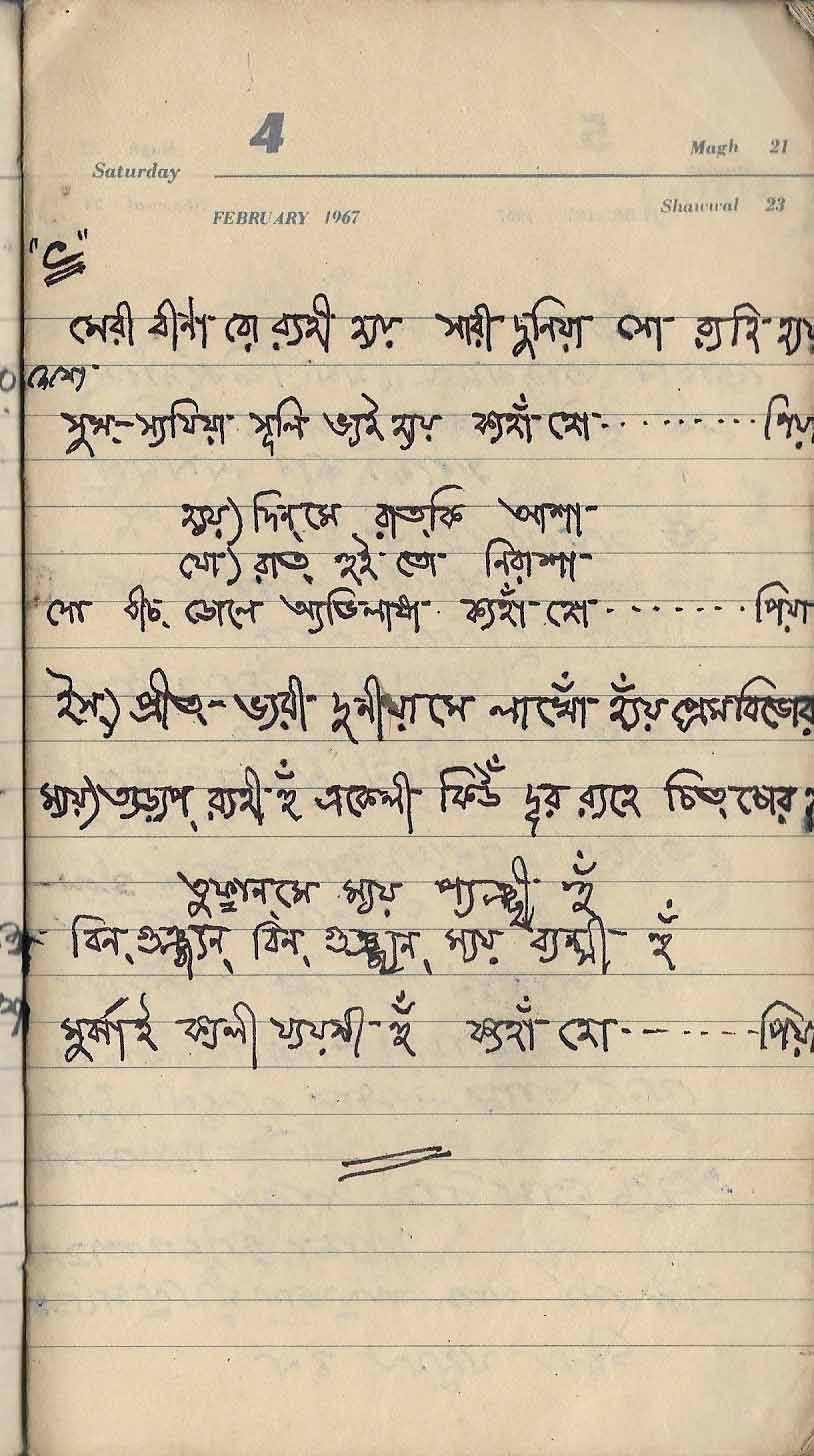 4
Saturday
Magh 21
FEBRUARY 1967
Shawwal 23
"৫"
মেরী বীণা রো র‍্যহী হ্যয় সারী দুনিয়া সো র‍্যহি হ্যয়
সুখ-স্যখিয়া সূলি ভ্যই হ্যয় ক্যহাঁ হো ......... পিয়া
হ্যয়) দিন্‌মে রাত্‌কি আশা
যো) রাত্‌ হুই তো নিরাশা
দো বীচ্‌ ডোলে অ্যভিলাষা ক্যহাঁ হো ....... পিয়া
ইস্‌) প্রীত্‌-ভ্যরী দুনীয়ামে লাখোঁ হ্যঁয় প্রেমবিভোর
ম্যয়) ত্যড়্যপ্‌ র‍্যহী হুঁ একেলী কিউঁ দূর র‍্যহে চিত্‌চোর
তুফানমে ম্যয় প্যনছী হুঁ
বিন্‌ গুঞ্জ্যন্‌ বিন্‌ গুঞ্জ্যন্‌ ম্যয় ব্যন্সী হুঁ
মুর্ঝাই ক্যলী য্যয়সী হুঁ ক্যহাঁ হো ------- পিয়া